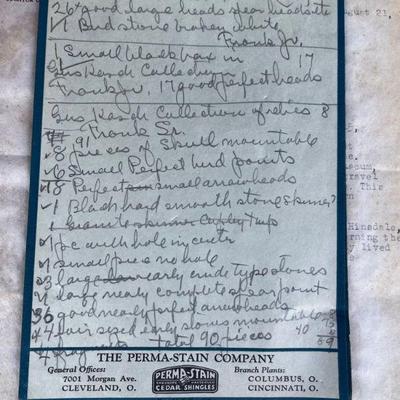 26 good large heads spear heads etc
1 Bird stone broken white
Frank Jr.
1 Small black box in 17
Gus Karsh Collection
Frank Jr. 17 good perfect heads
Gus Karsh Collection of relics 8
Frank Sr.
91
8 pieces of Skull mountable
6 Small Perfect bird points
18 Perfect small arrowheads
1 Black hard smooth stone skinner?
1 Granite skinner
1 pc with hole in centr
1 small piece no hole
3 large early crude type stones
2 long nearly complete spear point
36 good nearly perfect arrowheads
4 fair sized early stones mountable 40
4 total 90 pieces 69
THE PERMA-STAIN COMPANY
General Offices:
7001 Morgan Ave.
CLEVELAND, O.
PERMA-STAIN
CEDAR SHINGLES
Branch Plants:
COLUMBUS, O.
CINCINNATI, O.
ugust 21,
travel
This
Hinsdale,
rning the
y lived